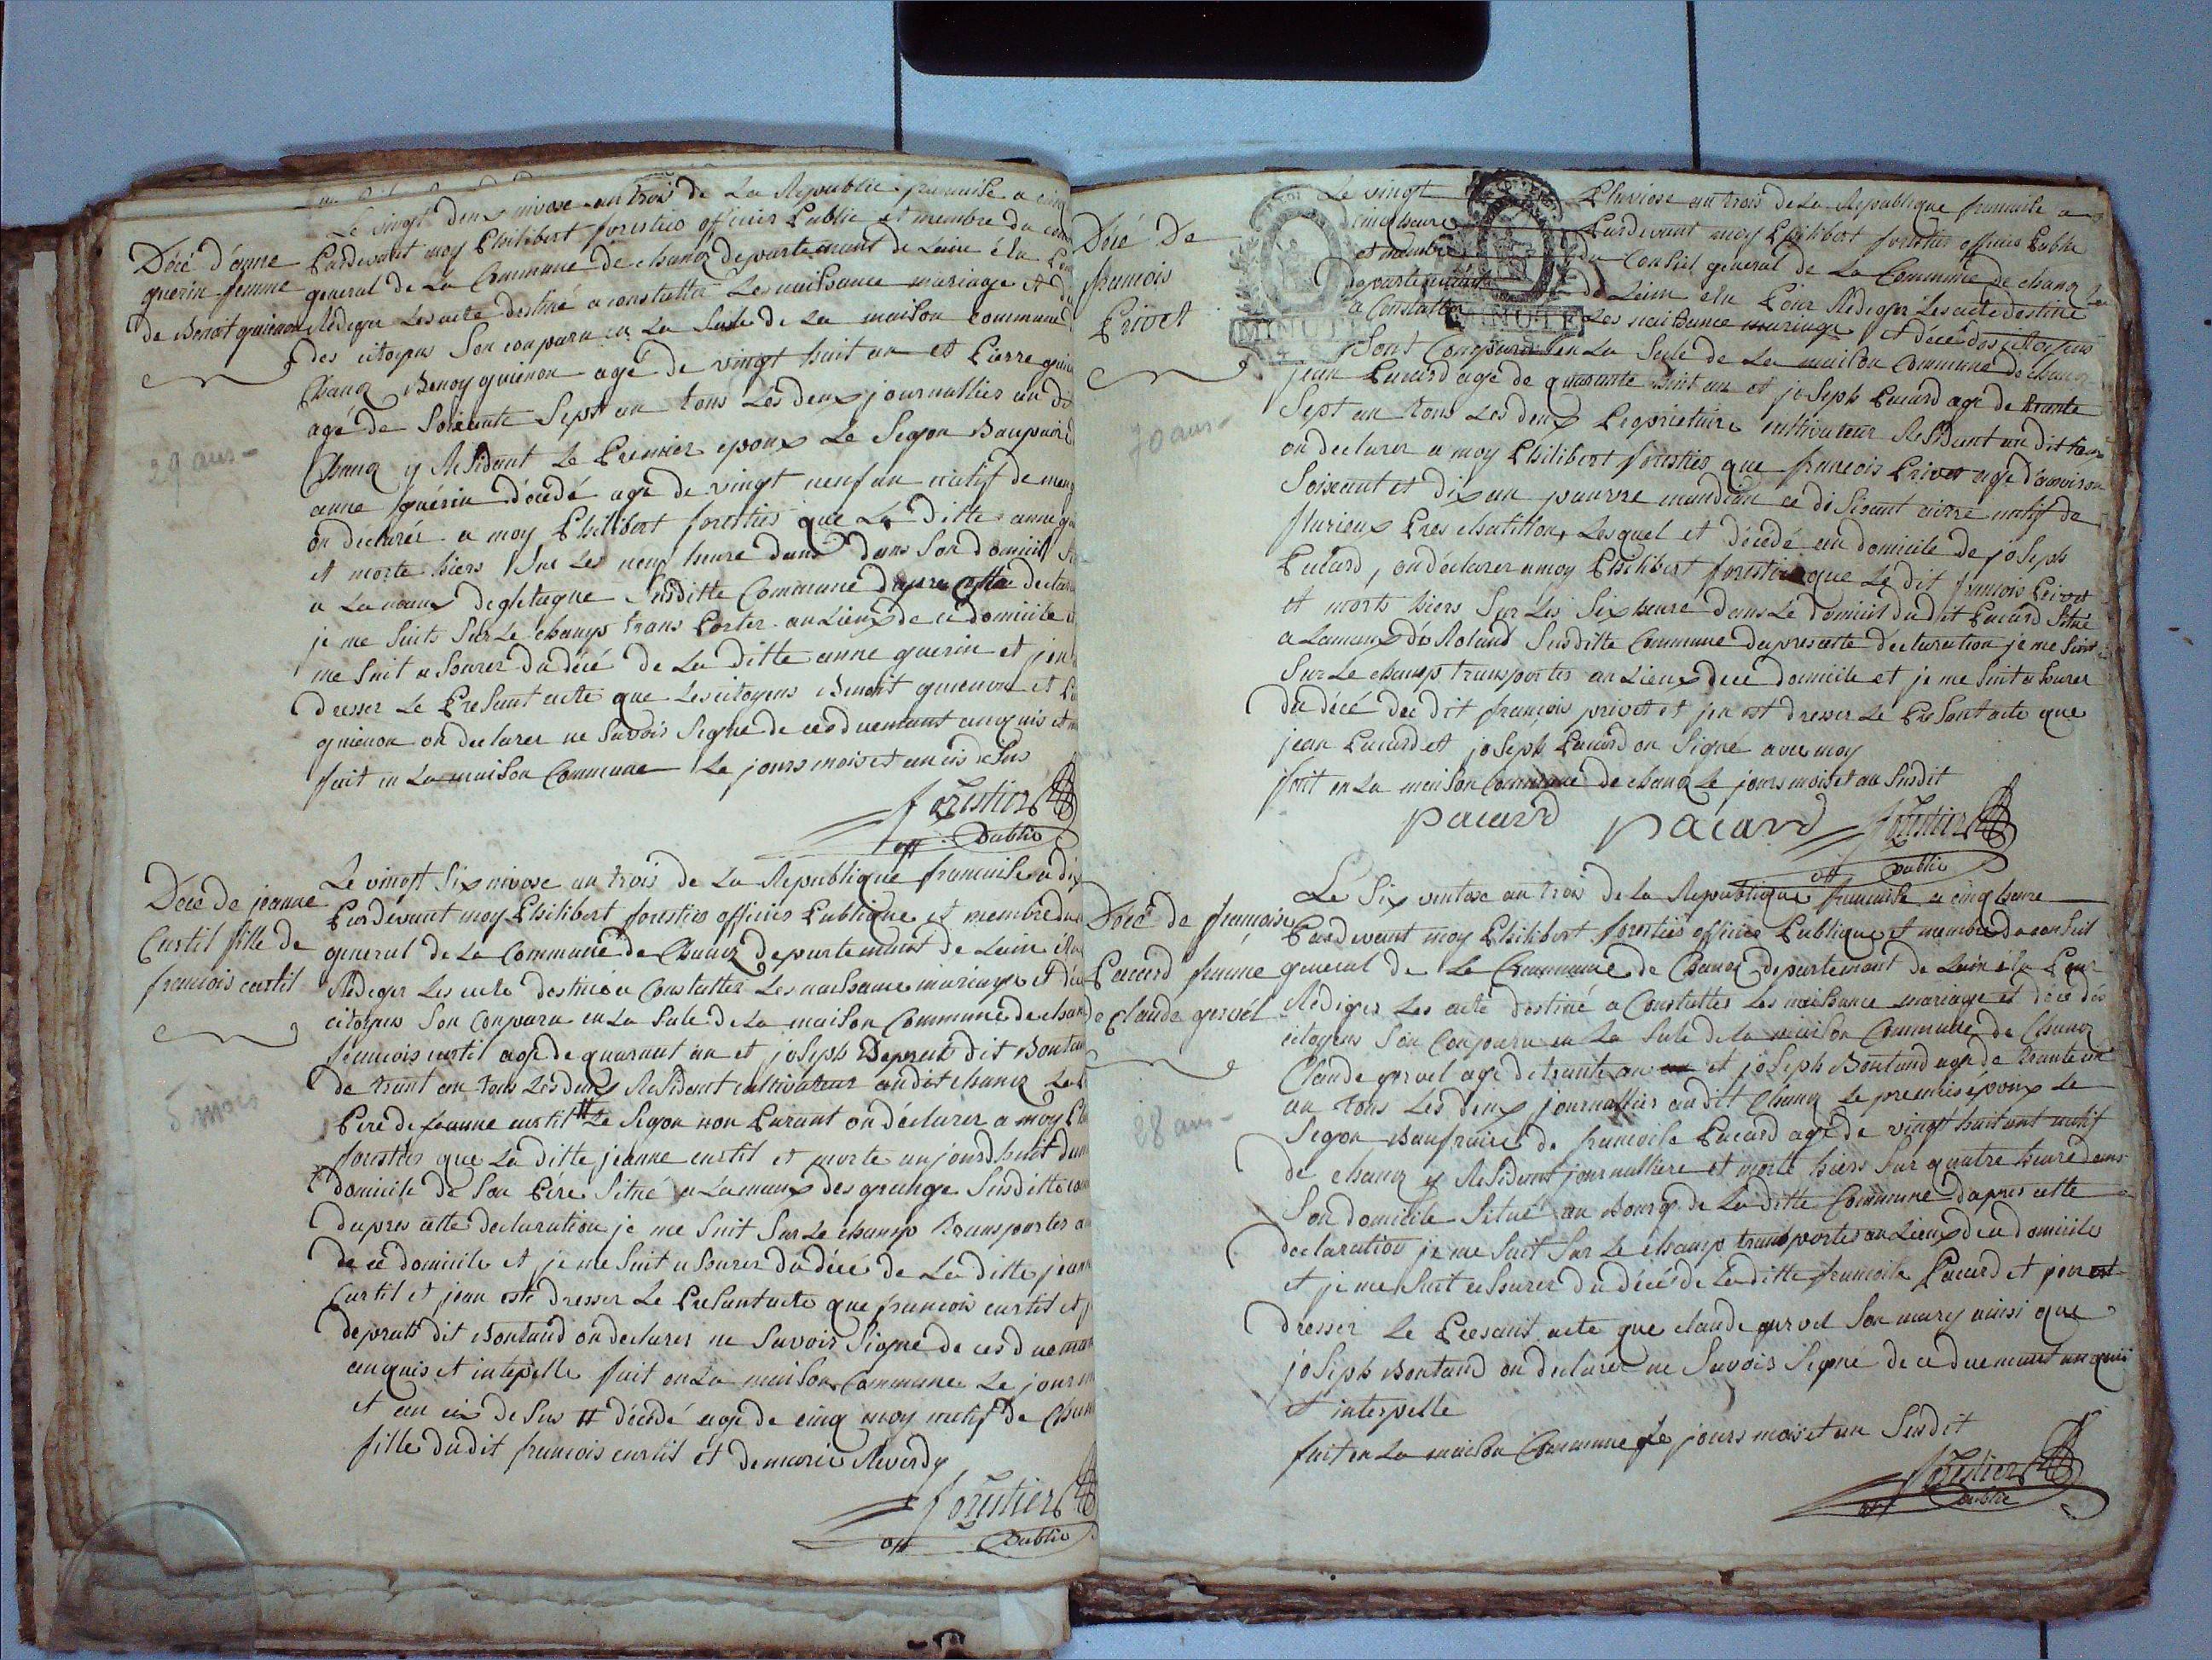 Le vingt deux nivose an trois de La Republic francaise a cinq
Décé d'anne
guerin femme
de Benoit guienon
Pardevant moy Philibert forestier officier Public et membre du
general de La Commune de chanoz departement de Lain élu
Rediger Les acte destiné a constatter Les naissance mariage et
des citoyens Son conparu en La Sale de La maison commune
Chanoz Benoy guienon agé de vingt huit an et Pierre
agé de Soixante Sept an tous Les deux journallier au
Chanoz y Residant Le Premier epoux Le Segon Baupaire
anne guérin décédé agé de vingt neuf an natif de
on déclarér a moy Philibert forestier que La ditte anne
et morte hiers Sur Les neuf heure dans dans Son domicil
a La maux de gletagne Susditte Commune dapres cette
je me Suits Sur Le champs trans Porter au Lieux de ce domicile
me Suit assurer du décé de La ditte anne guerin et
dresser Le Presant acte que Les citoyens Benoit guienon et
guienon on declarer ne Savoir Signé de ce duemant anquis et
fait in La maison Commune Le jours mois et an cis desus
forestier
off Public
29 ans
Le vingt Six nivose an trois de La Republique francaise a dix
Décé de jeanne
Curtil fille de
francois curtil
Pardevant moy Philibert forestier officier Publique et membre du
general de La Commune de Chanoz departemant de Lain
Rediger Les acte destiné a Constatter Les naissance mariage et
citoyens Son Conparu en La Sale de La maison Commune de
francois curtil agé de quarant an et joSeph Depras dit
de trant an tous Les deux Residant cultivateur audit chanoz
Peré de jeanne curtil # Le Segon non Parant on déclarer a moy
forestier que La ditte jeanne curtil et morte aujourdhuit
domicile de Son Pere Situé a La maux des grange Susditte
dapres cette declaration je me Suit Sur Le champ Transporter
de ce domicile et je me Suit assurer du décé de La ditte
Curtil et jean esté dresser Le Presant acte que francois curtil et
depras dit Boutand on declarer ne Savoir Signé de ce
anquis et intepelle fait en La maison Commune Le jour
et an cis desus # décédé agé de cinq moy natif de
fille dudit francois curtil et de marie Reverdy
forestier
off Public
5 mois
Le vingt Pluviose an trois de La Republique francaise a
Décé De
francois
Privet
heure Pardevant moy Philibert forestier officier Public
et membre du Conseil general de La Commune de chanoz
departemant de Lain elu Pour Rediger Les acte destiné
a Constatter Les naissance mariage et décé des citoyens
MINUTE
MINUTE
Sont Conparu en La Sale de La maison Commune de chanoz
jean Pacard agé de quarante huit an et joSeph Pacard agé de trante
Sept an tous Les deux Propriétaire cultivateur Residant au dit
on declarer a moy Philibert forestier que francois Privet agé d'anviron
Soiseant et dix an pauvre mandian ce disseant natif de
flurieux Pres chatillon, Lesquel et décédé au domicile de joSeph
Pacard, on déclarer a moy Philibert forestier que Le dit francois Privet
et morts hiers Sur Les Six heure dans Le domicil dudit Pacard Situé
a La maux dé Roland Susditte Commune dapres cette déclaration je me Suit
Sur Le champ transporter au Lieux de ce domicile et je me Suit assurer
du décé de dit francois privet et jen est dresser Le Presant acte que
jean Pacard et joSeph Pacard on Signé avec moy
fait en La maison Commune de chanoz Le jours mois et an Susdit
pacard pacard forestier
off public
70 ans
Le Six ventose an trois de la Republique francaise a cinq heure
Décé de francoise
Pacard femme
de claude gervel
Pardevant moy Philibert forestier officier Publique et membre du conseil
general de La Commune de Chanoz departemant de Lain elu Pour
Rediger Les acte destiné a Constatter Les naissance mariage et décé dés
citoyens Son Conparu en La Sale de la maison Commune de Chanoz
Claude gervel agé de trante an et joSeph Boutand agé de trante un
an tous Les deux journallier audit Chanoz Le premier époux Le
Segon Baufraire de francoise Pacard agé de vingt huit ant natif
de chanoz y Residant journalliere et morte hiers Sur quatre heure dans
Son domicile Situé au Bourg de La ditte Commune dapres cette
declaration je me Suit Sur Le champ transporter au Lieux de ce domicile
et je me Suit assurer du décé de La ditte francoise Pacard et jen est
dresser Le Presant acte que claude gervel Son mary ainsi que
joSeph Boutand on declarer ne Savoir Signé de ce duemant anquis
et interpelle
fait en La maison Commune Le jours mois et an Susdit
forestier
off Public
28 ans